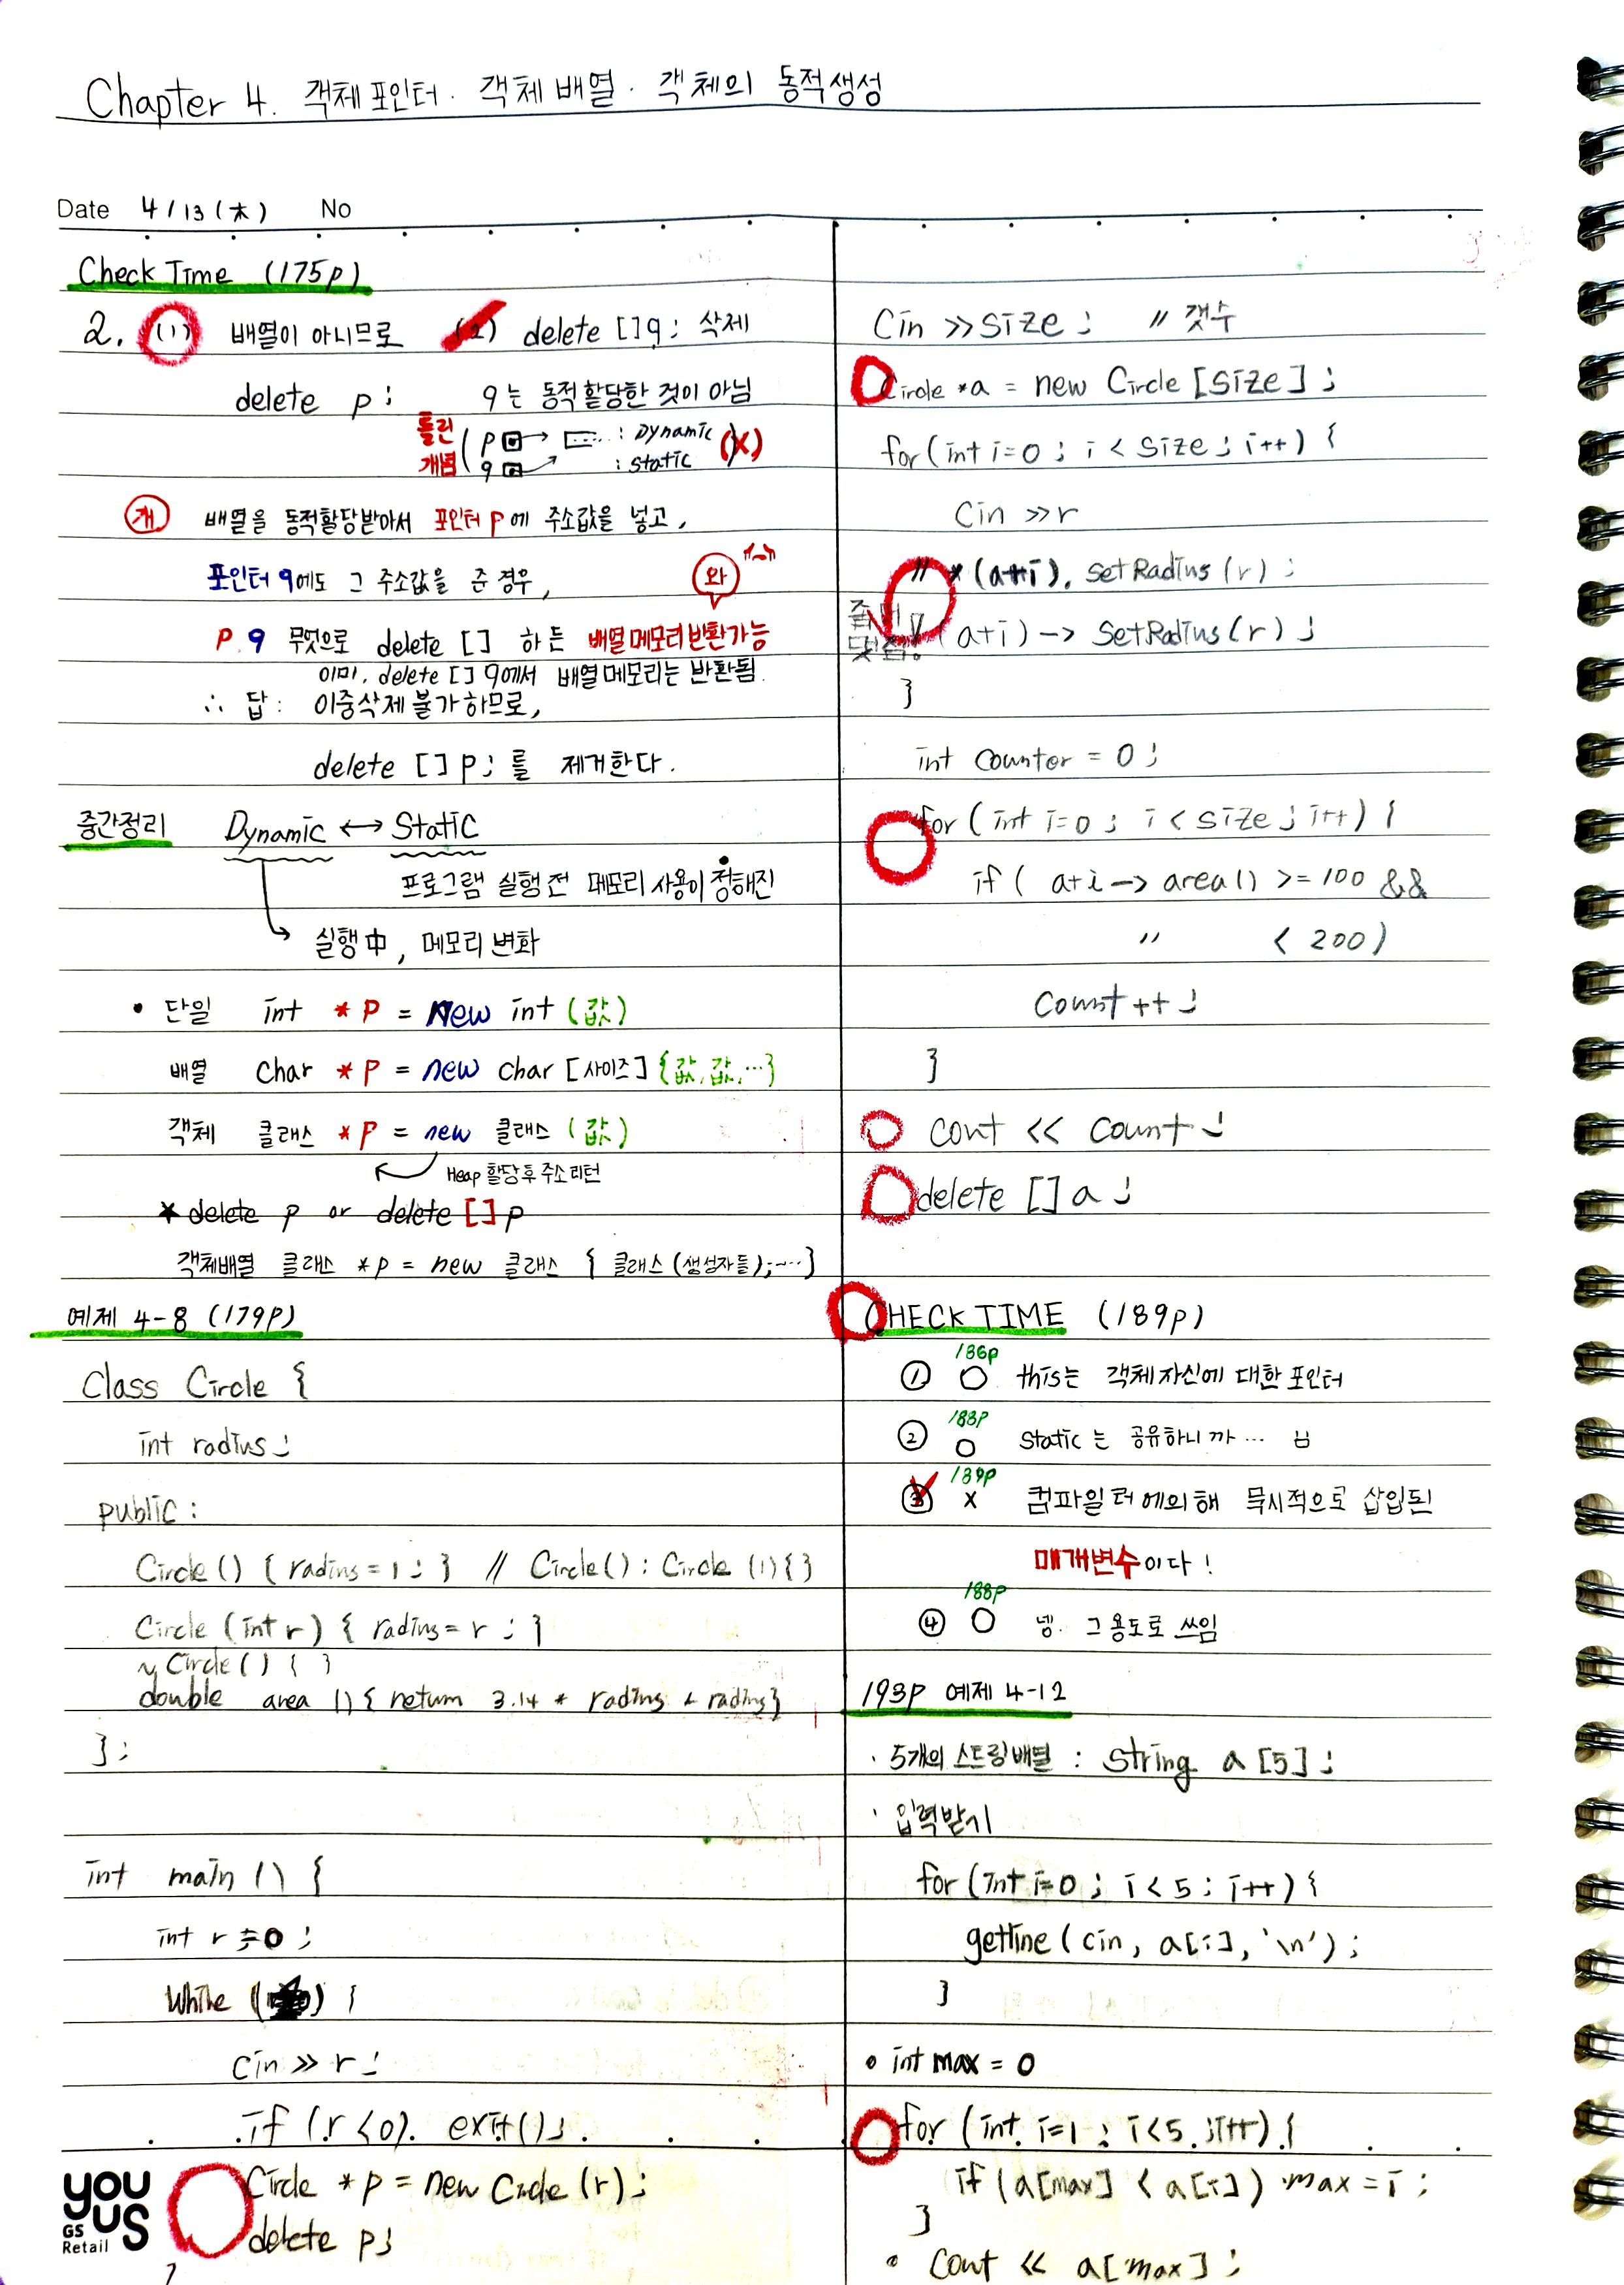 Chapter 4. 객체 포인터. 객체 배열. 객체의 동적생성
Date 4/13(木) No
Check Time (175p)
2. (1) 배열이 아니므로 (2) delete []q; 삭제
delete p; q는 동적 할당한 것이 아님
틀린 개념 ( p → : Dynamic
q → : static ) (X)
개 배열을 동적할당받아서 포인터 p에 주소값을 넣고,
포인터 q에도 그 주소값을 준 경우,
와
p. q 무엇으로 delete [] 하든 배열메모리 반환가능
이미, delete [] q에서 배열메모리는 반환됨.
∴ 답: 이중삭제 불가하므로,
delete []p; 를 제거한다.
중간정리 Dynamic ↔ Static
프로그램 실행 전 메모리 사용이 정해진
실행中, 메모리 변화
• 단일 int *p = new int (값)
배열 char *p = new char [사이즈] {값, 값, …}
객체 클래스 *p = new 클래스 (값)
Heap 할당후 주소 리턴
★ delete p or delete []p
객체배열 클래스 *p = new 클래스 { 클래스(생성자들); … }
예제 4-8 (179p)
Class Circle {
int radius;
public:
Circle() { radius=1; } // Circle(): Circle (1){}
Circle (int r) { radius= r ; }
~Circle() { }
double area () { return 3.14 * radius * radius}
};
int main () {
int r =0 ;
While ( ) {
cin >> r;
if (r<0) exit();
Circle *p = new Circle (r);
delete p;
}
you us
GS Retail
Cin >> size; // 갯수
Circle *a = new Circle [size];
for (int i=0 ; i < size ; i++) {
Cin >> r
// *(a+i). setRadius (r) ;
(a+i) -> SetRadius(r) ;
}
int counter = 0;
for ( int i=0 ; i < size ; i++) {
if ( a+i -> area() >= 100 &&
〃 < 200)
Count ++ ;
}
cout << count ;
delete [] a ;
CHECK TIME (189p)
① 186p ○ this는 객체 자신에 대한 포인터
② 188p ○ Static는 공유하니까 …
③ 189p x 컴파일러에 의해 묵시적으로 삽입된
매개변수이다!
④ 188p ○ 넹. 그 용도로 쓰임
193p 예제 4-12
· 5개의 스트링배열 : String a [5] ;
· 입력받기
for (int i=0 ; i < 5 ; i++) {
getline (cin, a[i], '\n') ;
}
• int max = 0
for (int i=1 ; i<5 ; i++) {
if (a[max] < a[i]) max = i ;
}
• Cout << a[max] ;